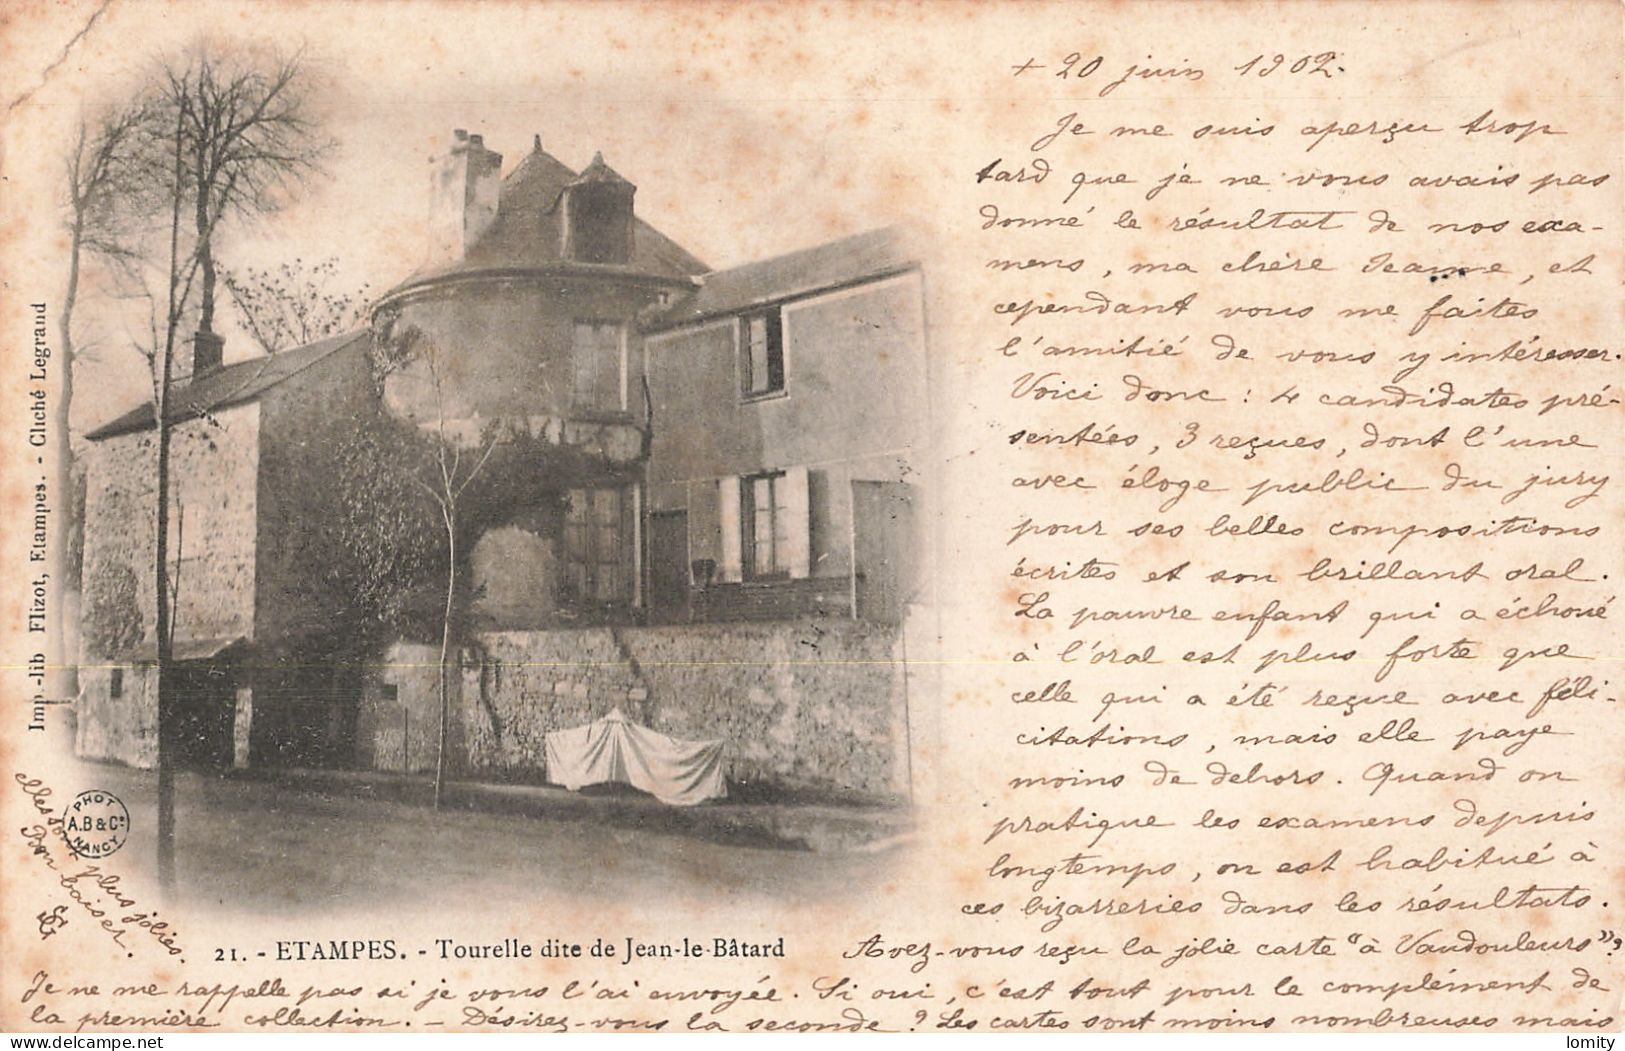 + 20 juin 1902.
Je me suis aperçu trop
tard que je ne vous avais pas
donné le résultat de nos exa-
mens, ma chère Jeanne, et
cependant vous me faites
l'amitié de vous y intéresser.
Voici donc : 4 candidates pré-
sentées, 3 reçues, dont l'une
avec éloge public du jury
pour ses belles compositions
écrites et son brillant oral.
La pauvre enfant qui a échoué
à l'oral est plus forte que
celle qui a été reçue avec féli-
citations, mais elle paye
moins de dehors. Quand on
pratique les examens depuis
longtemps, on est habitué à
ces bizarreries dans les résultats.
Avez-vous reçu la jolie carte "à Vaudouleurs"?
Je ne me rappelle pas si je vous l'ai envoyée. Si oui, c'est tout pour le complément de
la première collection. - Désirez-vous la seconde ? Les cartes sont moins nombreuses mais
elles sont plus jolies.
Bon baiser.
21. - ETAMPES. - Tourelle dite de Jean-le-Bâtard
Imp.-lib Flizot, Etampes. - Cliché Legrand
PHOT
A.B & Cº
NANCY
delcampe.net
lomity